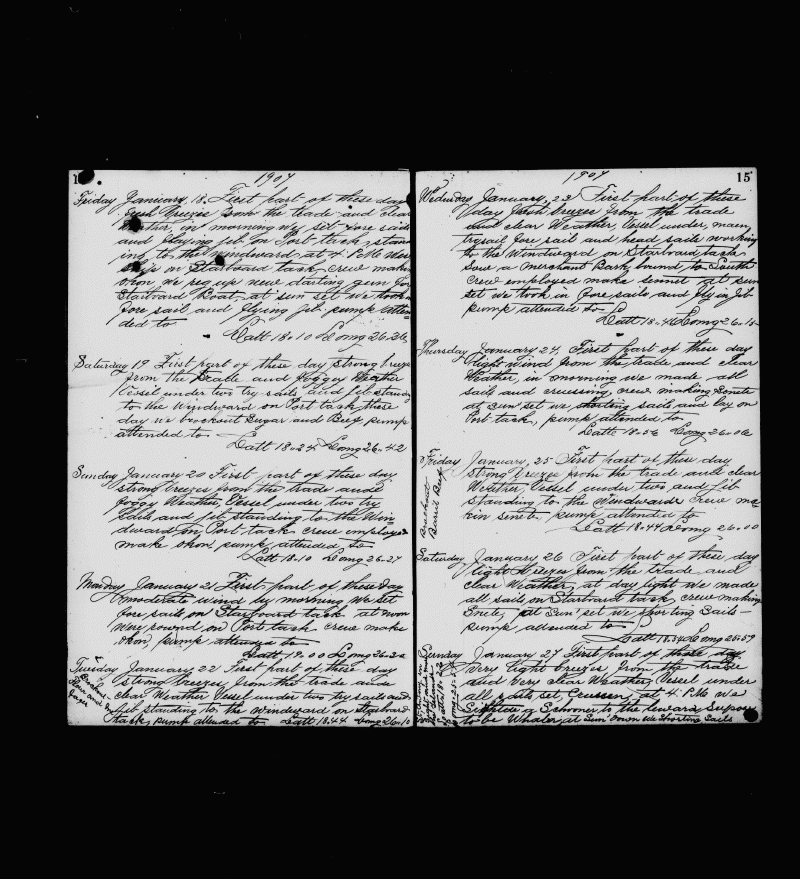 1907
Friday January, 18. First part of these day
fresh breezes from the trade and clear
Weather, in morning we set fore sails
and flaying jib on Port tack, stand
ing to the Windward, at 4 P.M. Were
ships on Starboard tack, crew makin
we reg up new darting gun for
Starboard Boat, at sun set we took in
fore sail and flying jib pump atten=
ded to
Latt 18-10 Long 26.26
Saturday 19 First part of these day strong breeze
from the trade and foggey Weather
Vessel under two try sails and jib standing
to the Windward on Port tack these
day we brockout Sugar and Beef, pump
attended to
Latt 18-24 Long 26-42
Sunday January 20 First part of these day
strong breezes from the trade and
foggy Weather, Vessel under two try
sails and jib standing to the Win
dward on Port tack crew employed
make pump attended to
Latt 18-10 Long 26-27
Monday January 21 First part of these day
moderate wind by morning we set
fore sails on Starboard tack at noon
Were on Port tack crew make
pump attended to
Latt 19.00 Long 26-22
Tuesday January 22 First part of these day
strong breezes from the trade and
clear Weather Vessel under two try sails and
jib standing to the windward on Starboard
tack, pump attended to Latt 18.44 Long 26.10
Brockout
Flour and
1907
15
Wedsday January, 23 First part of these
day fresh breezes from the trade
and clear Weather, Vessel under, main
trysail fore sail and head sails working
to the Windward on Starboard tack
Saw a Merchant Bark bound to South
Crew employed make sennet at sun
set we took in fore sails and flyin jib
pump attended to
Latt 18-46 Long 26-15
Thursday January 24, First part of these day
light wind from the trade and clear
Weather, in morning we made all
sails and cruessing, crew making senete
at sun set we shorting sails and lay on
Port tack, pump attended to
Latt 18-56 Long 26-06
Friday January, 25 First part of these day
strong breeze from the trade and clear
Weather, Vessel under two and jib
Standing to the Windwards Crew ma
kin senet. pump attended to
Latt 18-44 Long 26-00
Brockout
Barrel Beef
Saturday January 26 First part of these day
light Breezes from the trade and
clear Weather, at day light we made
all sails on Starboard tack, crew making
Senete, at Sun set we Shorting Sails
pump attended to
Latt 18.34 Long 25-59
Sunday January 27 First part of these day
very light breezes from the trade
and very clear Weather, Vessel under
all sails set Creussen, at 4 P.M. we
a Schooner to the leward Supose
to be Whaler at Sun Down We Shorting Sails